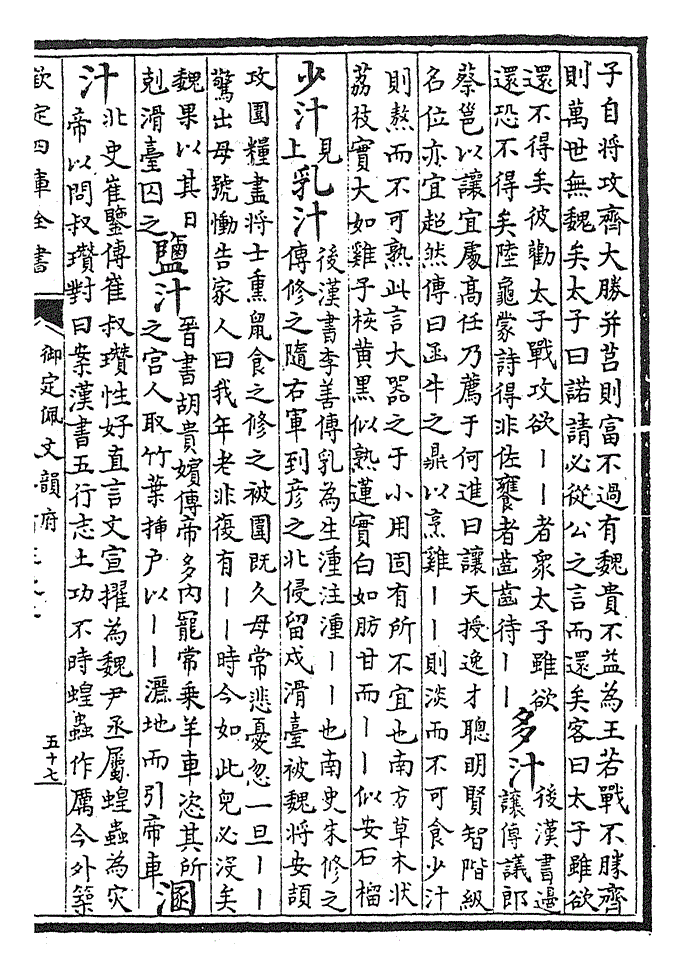 子自將攻齊大勝并莒則富不過有魏貴不益為王若戰不勝齊
則萬世無魏矣太子曰諾請必從公之言而還矣客曰太子雖欲
還不得矣彼勸太子戰攻欲丨丨者衆太子雖欲
還恐不得矣陸龜蒙詩得非佐饔者齒齒待丨丨
多汁
後漢書邊
讓傳議郎
蔡邕以讓宜處高任乃薦于何進曰讓天授逸才聰明賢智階級
名位亦宜超然傳曰函牛之鼎以烹雞丨丨則淡而不可食少汁
則熬而不可熟此言大器之于小用固有所不宜也南方草木狀
荔枝實大如雞子核黄黑似熟蓮實白如肪甘而丨丨似安石榴
少汁
見
上
乳汁
後漢書李善傳乳為生湩注湩丨丨也南史朱修之
傳修之隨右軍到彦之北侵留戍滑臺被魏將安頡
攻圍糧盡將士熏鼠食之修之被圍既久母常悲憂忽一旦丨丨
驚出母號慟告家人曰我年老非復有丨丨時今如此兒必没矣
魏果以其日
剋滑臺囚之
鹽汁
晉書胡貴嬪傳帝多内寵常乗羊車恣其所
之宫人取竹葉揷户以丨丨灑地而引帝車
溷
汁
北史崔鑒傳崔叔瓚性好直言文宣擢為魏尹丞屬蝗蟲為灾
帝以問叔瓚對曰案漢書五行志土功不時蝗蟲作厲今外築
欽定四庫全書
御定佩文韻府
五十七